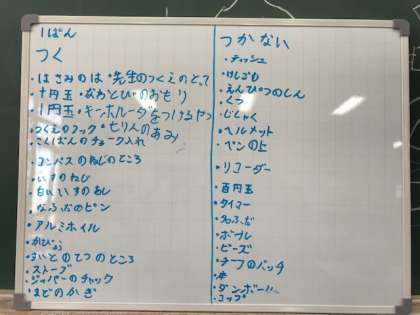 1ぱん
つく
・はさみのは ・先生のつくえのとって
・十円玉 ・なわとびのおもり
・1円玉 ・キーホルダーをつけるやつ
・つくえのフック ・七りんのあみ
・こくばんのチョーク入れ
・コンパスのねじのところ
・いすのねじ
・白い いすのあし
・なふだのピン
・アルミホイル
・がびょう
・ストーブ
・ジッパーのチャック
・まどのかぎ
つかない
・ティッシュ
・けしゴム
・えんぴつのしん
・くつ
・じしゃく
・ヘルメット
・ペンの上
・リコーダー
・百円玉
・タイマー
・名ふだ
・ボール
・ビーズ
・木
・ダンボール
・コップ